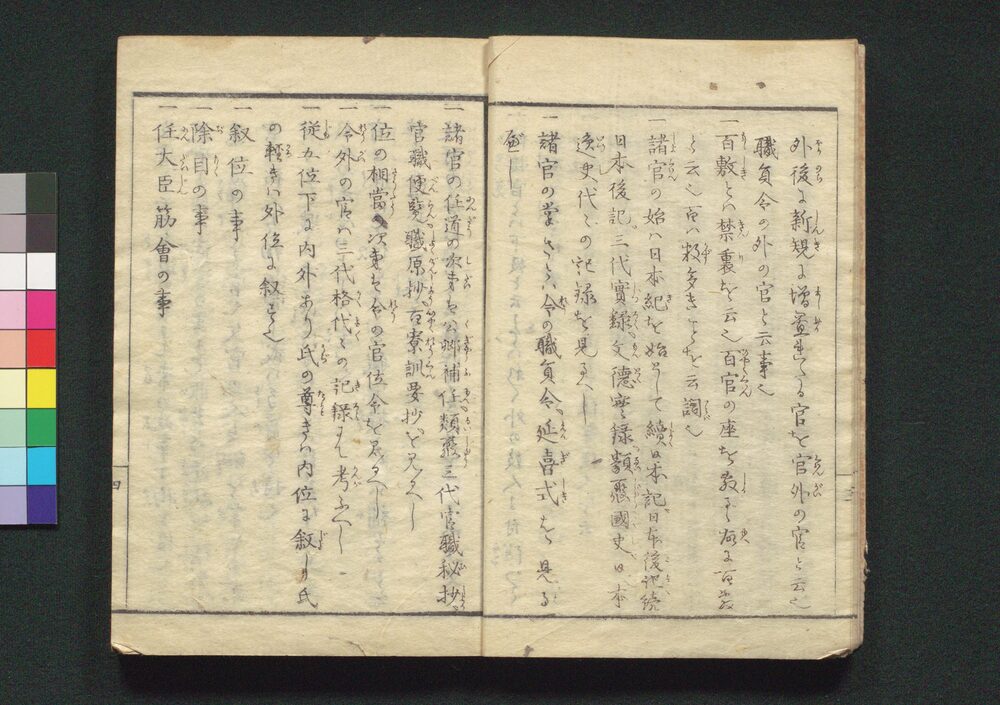 外後に新規に増置せらるる官を官外の官と云也
職員令の外の官と云事也
一百敷とハ禁裏を云也百官の座を敷
と云也百ハ数多きことを云詞也
一諸官の始ハ日本紀を始として續日本記日本後記続
日本後記三代實録文徳實録類聚國史日本
逸史代々の記録を見るへし
一諸官の掌ることハ令の職員令延喜式にて見る
へし
一諸官の任道の次第ハ公卿補任類聚三代官職秘抄
官職便覧職原抄百寮訓要抄を見へし
一位の相當次第を令の官位令を見るへし
一令外の官ハ三代格代々の記録にて考ふへし
一従五位下に内外あり氏の尊きハ内位に叙し氏
の軽きハ外位に叙する也
一叙位の事
一除目の事
一任大臣節會の事
四